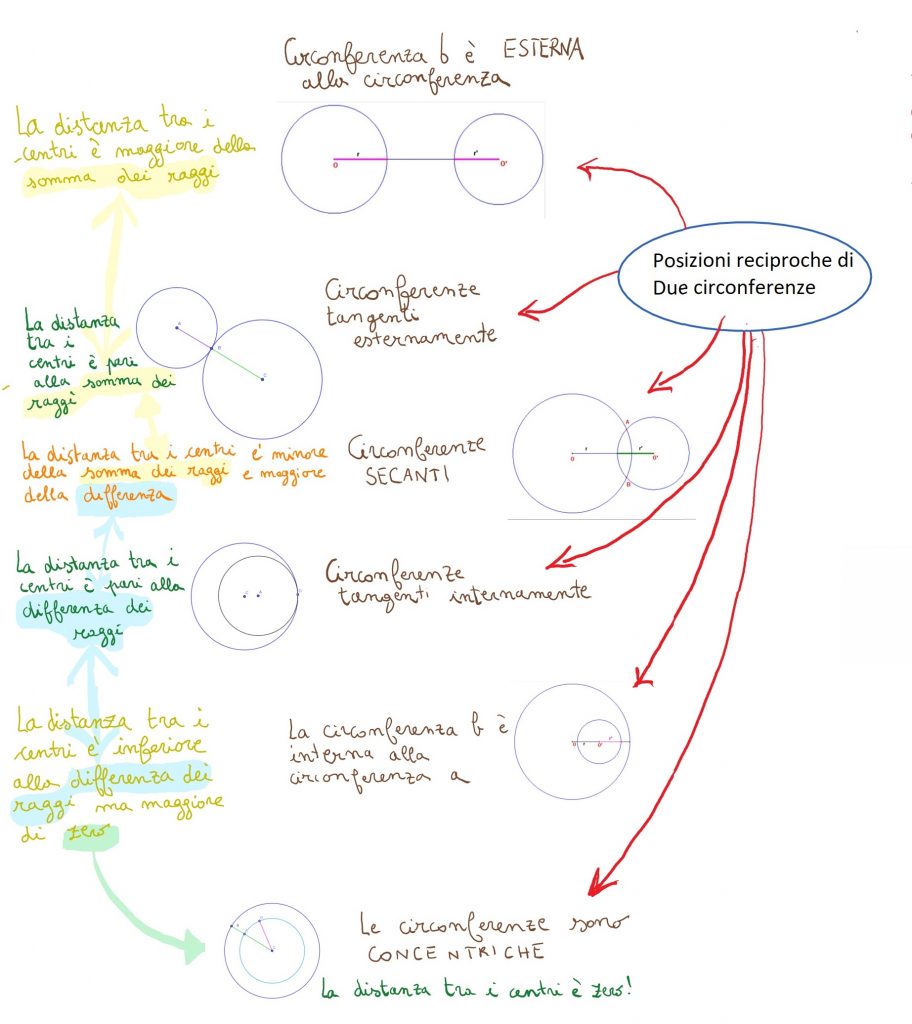 Circonferenza b è ESTERNA
alla circonferenza
La distanza tra i
centri è maggiore della
somma dei raggi
r
r'
O
O'
Posizioni reciproche di
Due circonferenze
Circonferenze
tangenti
esternamente
La distanza
tra i
centri è pari
alla somma dei
raggi
La distanza tra i centri è minore
della somma dei raggi e maggiore
della differenza
Circonferenze
SECANTI
A
r
r'
O
O'
B
La distanza tra i
centri è pari alla
differenza dei
raggi
Circonferenze
tangenti internamente
La distanza tra i
centri è inferiore
alla differenza dei
raggi ma maggiore
di zero
La circonferenza b è
interna alla
circonferenza a
Le circonferenze sono
CONCENTRICHE
La distanza tra i centri è zero!